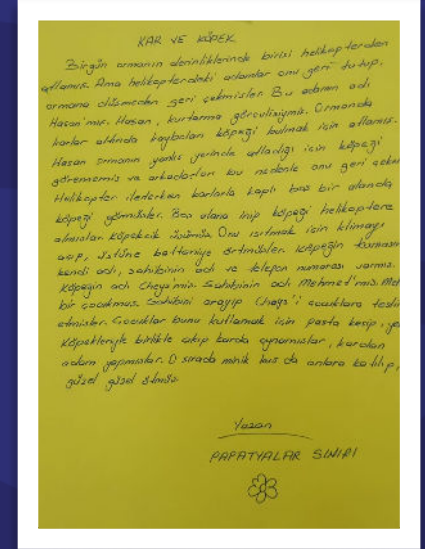 KAR VE KÖPEK
Birgün ormanın derinliklerinde birisi helikopterden
atlamış. Ama helikopterdeki adamlar onu geri tutup,
ormana düşmeden geri çekmişler. Bu adamın adı
Hasan'mış. Hasan, kurtarma görevlisiymiş. Ormanda
karlar altında kaybolan köpeği bulmak için atlamış.
Hasan ormanın yanlış yerinde atladığı için köpeği
görememiş ve arkadaşları bu nedenle onu geri
Helikopter ilerlerken karlarla kaplı boş bir alanda
köpeği görmüşler. Boş alana inip köpeği helikoptere
almışlar. Köpekcik üşümüş. Onu ısıtmak için klimayı
açıp, üstüne battaniye örtmüşler. Köpeğin
kendi adı, sahibinin adı ve telefon numarası varmış.
Köpeğin adı mış. Sahibinin adı Mehmet'miş.
bir çocukmuş. Sahibini arayıp çocuklara
etmişler. Çocuklar bunu kutlamak için pasta kesip,
köpekleriyle birlikte çıkıp karda oynamışlar, kardan
adam yapmışlar. O sırada minik kuş da onlara katılıp,
güzel güzel ötmüş.
Yazan
PAPATYALAR SINIFI